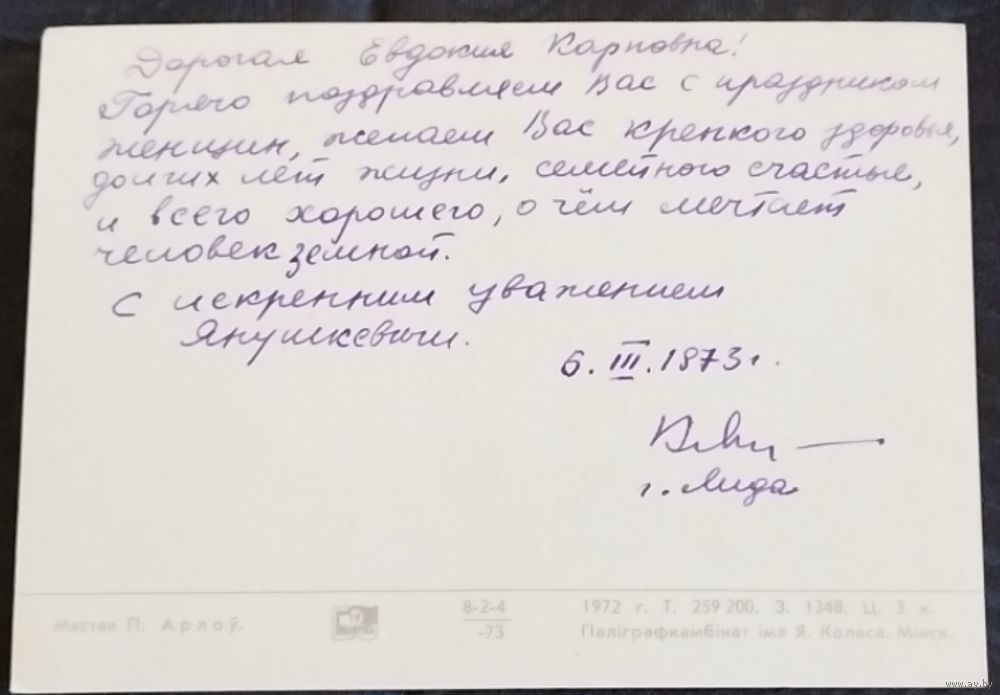 Дорогая Евдокия Карповна!
Горячо поздравляем Вас с праздником
женщин, желаем Вас крепкого здоровья,
долгих лет жизни, семейного счастье,
и всего хорошего, о чём мечтает
человек земной.
С искренним уважением
Янушкевичи.
6. III. 1973 г.
г. Лида
Мастак П. Арлоў.
8-2-4
-73
1972 г. Т. 259 200. З. 1348. Ц. 3 к.
Паліграфкамбінат імя Я. Коласа. Мінск.
www.ay.by